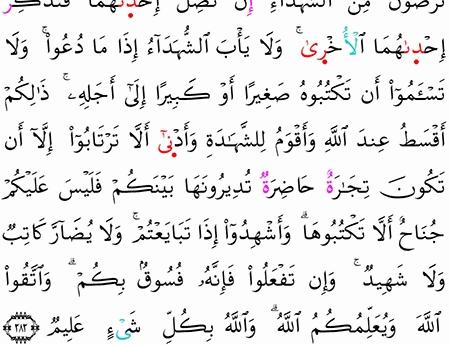 تَرْضَوْنَ مِنَ ٱلشُّهَدَآءِ إِن تَضِلَّ إِحْدَىٰهُمَا فَتُذَكِّرَ
إِحْدَىٰهُمَا ٱلْأُخْرَىٰ ۚ وَلَا يَأْبَ ٱلشُّهَدَآءُ إِذَا مَا دُعُوا۟ ۚ وَلَا
تَسْـَٔمُوٓا۟ أَن تَكْتُبُوهُ صَغِيرًا أَوْ كَبِيرًا إِلَىٰٓ أَجَلِهِۦ ۚ ذَٰلِكُمْ
أَقْسَطُ عِندَ ٱللَّهِ وَأَقْوَمُ لِلشَّهَٰدَةِ وَأَدْنَىٰٓ أَلَّا تَرْتَابُوٓا۟ ۖ إِلَّآ أَن
تَكُونَ تِجَٰرَةٌ حَاضِرَةٌ تُدِيرُونَهَا بَيْنَكُمْ فَلَيْسَ عَلَيْكُمْ
جُنَاحٌ أَلَّا تَكْتُبُوهَا ۗ وَأَشْهِدُوٓا۟ إِذَا تَبَايَعْتُمْ ۚ وَلَا يُضَآرَّ كَاتِبٌ
وَلَا شَهِيدٌ ۚ وَإِن تَفْعَلُوا۟ فَإِنَّهُۥ فُسُوقٌۢ بِكُمْ ۗ وَٱتَّقُوا۟
ٱللَّهَ ۖ وَيُعَلِّمُكُمُ ٱللَّهُ ۗ وَٱللَّهُ بِكُلِّ شَىْءٍ عَلِيمٌ ٢٨٢